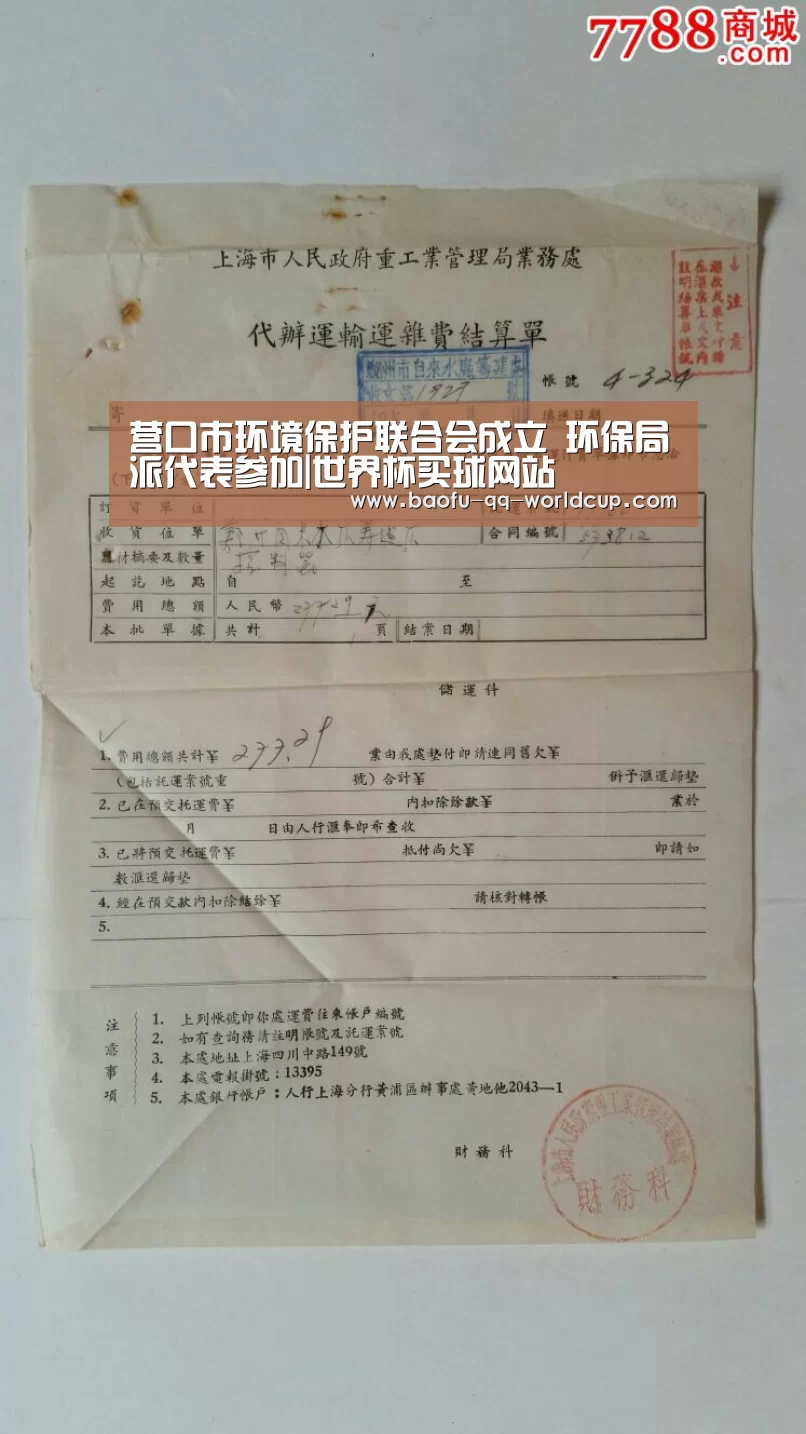 7788商城
.com
上海市人民政府重工業管理局業務處
代辦運輸運雜費結算單
注意
州市自來水廠籌建處
收文第1929號
帳號 4-324
填送日期
寄
营口市环境保护联合会成立 环保局
派代表参加|世界杯买球网站
www.baofu-qq-worldcup.com
訂貨單位
收貨位單
合同編號
器材摘要及數量
起訖地點 自 至
費用總額 人民幣
本批單據 共計 頁 結案日期
儲運科
1. 費用總額共計¥ 273.29 業由我處墊付即請連同舊欠¥
(包括託運案號壹 號)合計¥ 併予滙還歸墊
2. 已在預交托運費¥ 內扣除餘款¥ 業於
月 日由人行滙奉即希查收
3. 已將預交托運費¥ 抵付尚欠¥ 即請如
數滙還歸墊
4. 經在預交款內扣除結餘¥ 請核對轉帳
5.
注意事項
1. 上列帳號即你處運費往來帳戶編號
2. 如有查詢務請註明帳號及託運案號
3. 本處地址上海四川中路149號
4. 本處電報掛號：13395
5. 本處銀行帳戶：人行上海分行黃浦區辦事處黃地他2043—1
財務科
財務科